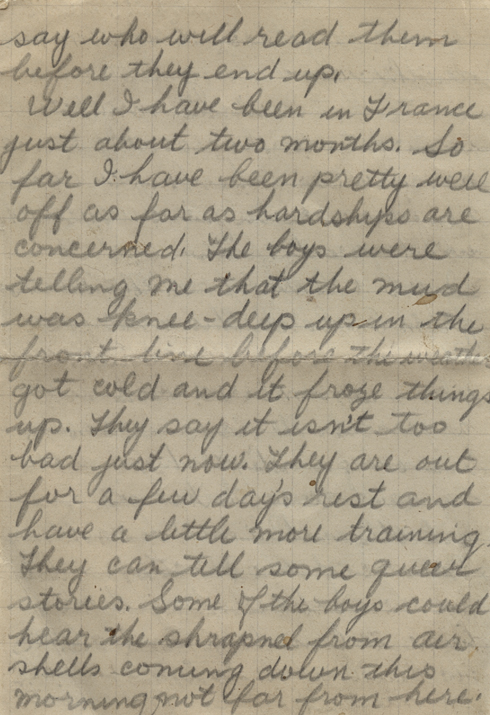 say who will read them
before they end up.
Well I have been in France
just about two months. So
far I have been pretty well
off as far as hardships are
concerned. The boys were
telling me that the mud
was knee-deep up in the
front line before the weather
got cold and it froze things
up. They say it isn't too
bad just now. They are out
for a few day's rest and
have a little more training.
They can tell some queer
stories. Some of the boys could
hear the shrapnel from air
shells coming down this
morning not far from here.